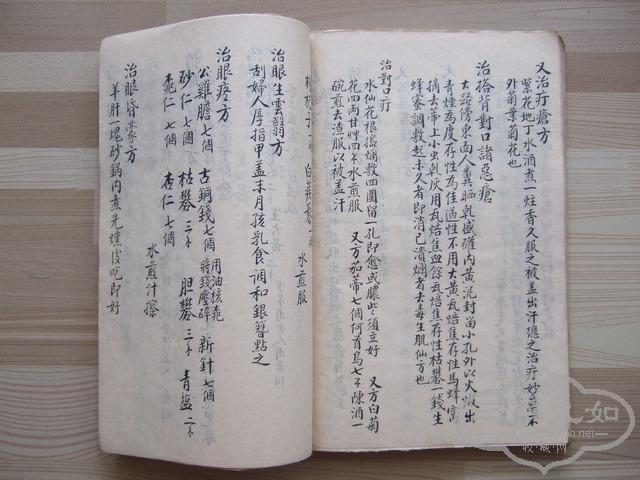 又治疔瘡方
紫花地丁水酒煮一炷香久服之被盖出汗
外菊葉菊花也
治搭背對口諸惡瘡
大路傍東面人糞晒乾盛礶内黄泥封
小孔外以火煅出
青煙為度存性為佳
不用大黄瓦焙焦存性馬蜂窩
摘去蒂上小虫乾灰用瓦焙焦血餘瓦焙焦存性枯礬一錢生
蜂蜜調敷起未久者即消已潰爛者去毒生肌仙方也
治對口疔
水仙花根搗爛敷四圍留一孔即愈或膿出須立好 又方白菊
花四两甘艸四水煎服 又方茄蒂七個何首烏七陳酒一
碗煎去渣服以被盖汗
水煎服
治眼生雲翳方
刮婦人厚指甲盖末月孩乳食調和銀簪點之
治眼疼方
公雞膽七個 古銅錢七個 用油核桃將錢壓碎 新針七個
砂仁七個 枯礬三 胆礬三 青盐二
桃仁七個 杏仁七個 水煎汁擦
治眼昏蒙方
羊肝一塊砂鍋内煮先燻後吃即好